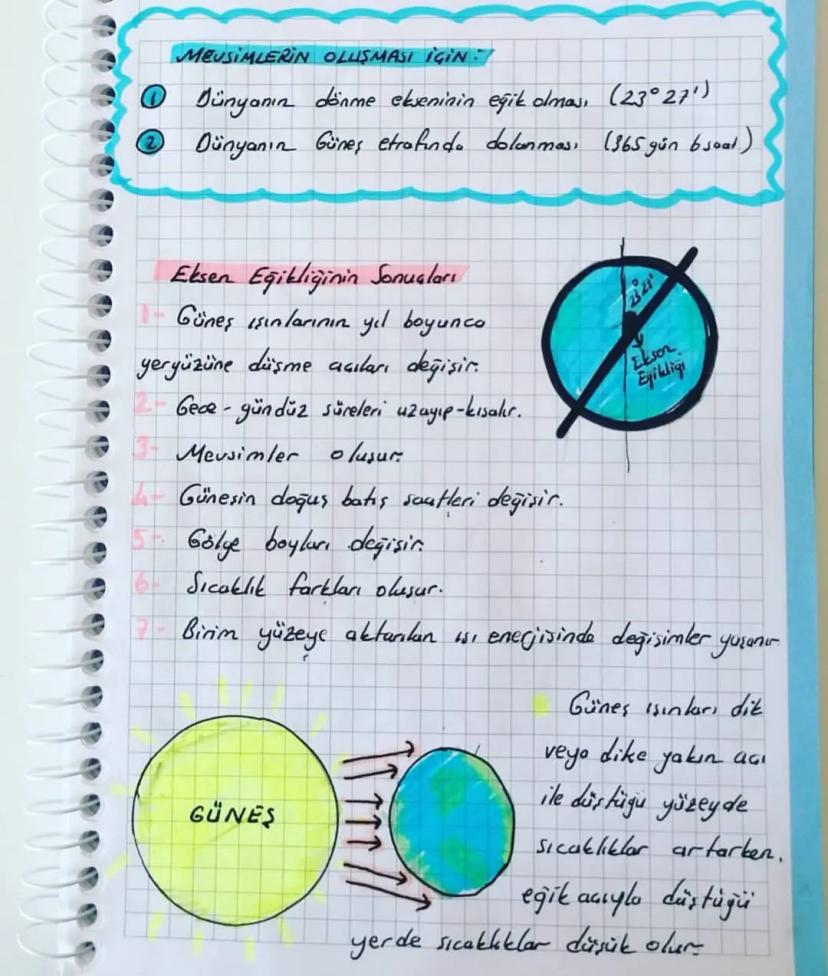 MEVSİMLERİN OLUŞMASI İÇİN:
1 Dünyanın dönme ekseninin eğik olması (23° 27')
2 Dünyanın Güneş etrafında dolanması (365 gün 6 saat)
Eksen Eğikliğinin Sonuçları
1- Güneş ışınlarının yıl boyunca
yeryüzüne düşme açıları değişir.
2- Gece-gündüz süreleri uzayıp-kısalır.
3- Mevsimler oluşur.
4- Güneşin doğuş batış saatleri değişir.
5- Gölge boyları değişir.
6- Sıcaklık farkları oluşur.
7- Birim yüzeye aktarılan ısı enerjisinde değişimler yaşanır
23° 27'
Eksen
Eğikliği
GÜNEŞ
Güneş ışınları dik
veya dike yakın açı
ile düştüğü yüzeyde
sıcaklıklar artarken,
eğik açıyla düştüğü
yerde sıcaklıklar düşük olur.